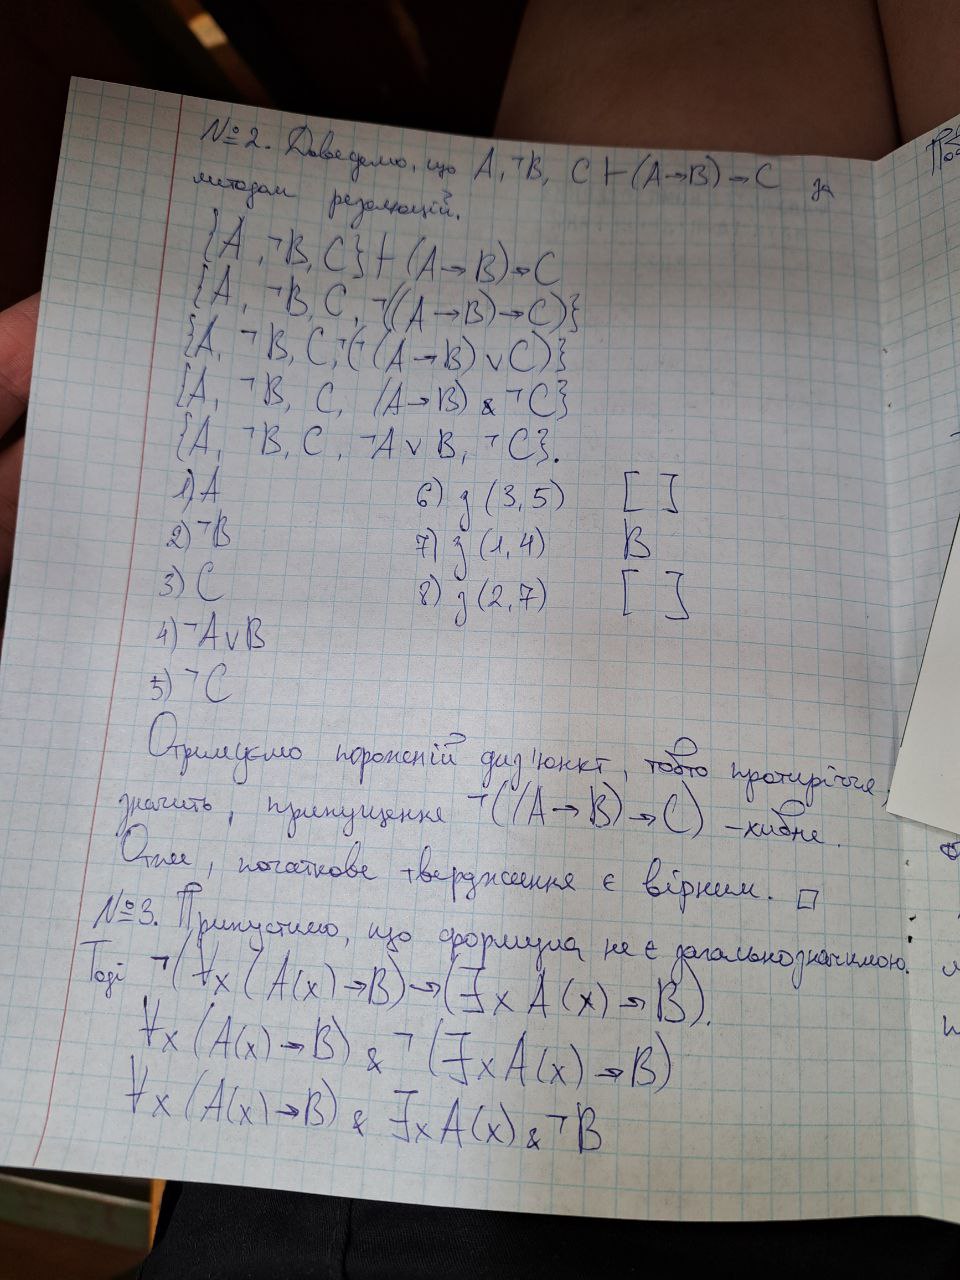 №2. Доведемо, що A, ¬B, C ⊢ (A→B)→C за
методом резолюцій.
{A, ¬B, C} ⊢ (A→B)→C
{A, ¬B, C, ¬((A→B)→C)}
{A, ¬B, C, ¬(¬(A→B) ∨ C)}
{A, ¬B, C, (A→B) & ¬C}
{A, ¬B, C, ¬A ∨ B, ¬C}.
1) A
2) ¬B
3) C
4) ¬A∨B
5) ¬C
6) з (3,5) [ ]
7) з (1,4) B
8) з (2,7) [ ]
Отримуємо порожній диз'юнкт, тобто протиріччя,
значить, припущення ¬((A→B)→C) – хибне.
Отже, початкове твердження є вірним. □
№3. Припустимо, що формула не є загальнозначимою.
Тоді ¬(∀x(A(x)→B)→(∃x A(x)→B).
∀x(A(x)→B) & ¬(∃x A(x)→B)
∀x(A(x)→B) & ∃x A(x) & ¬B